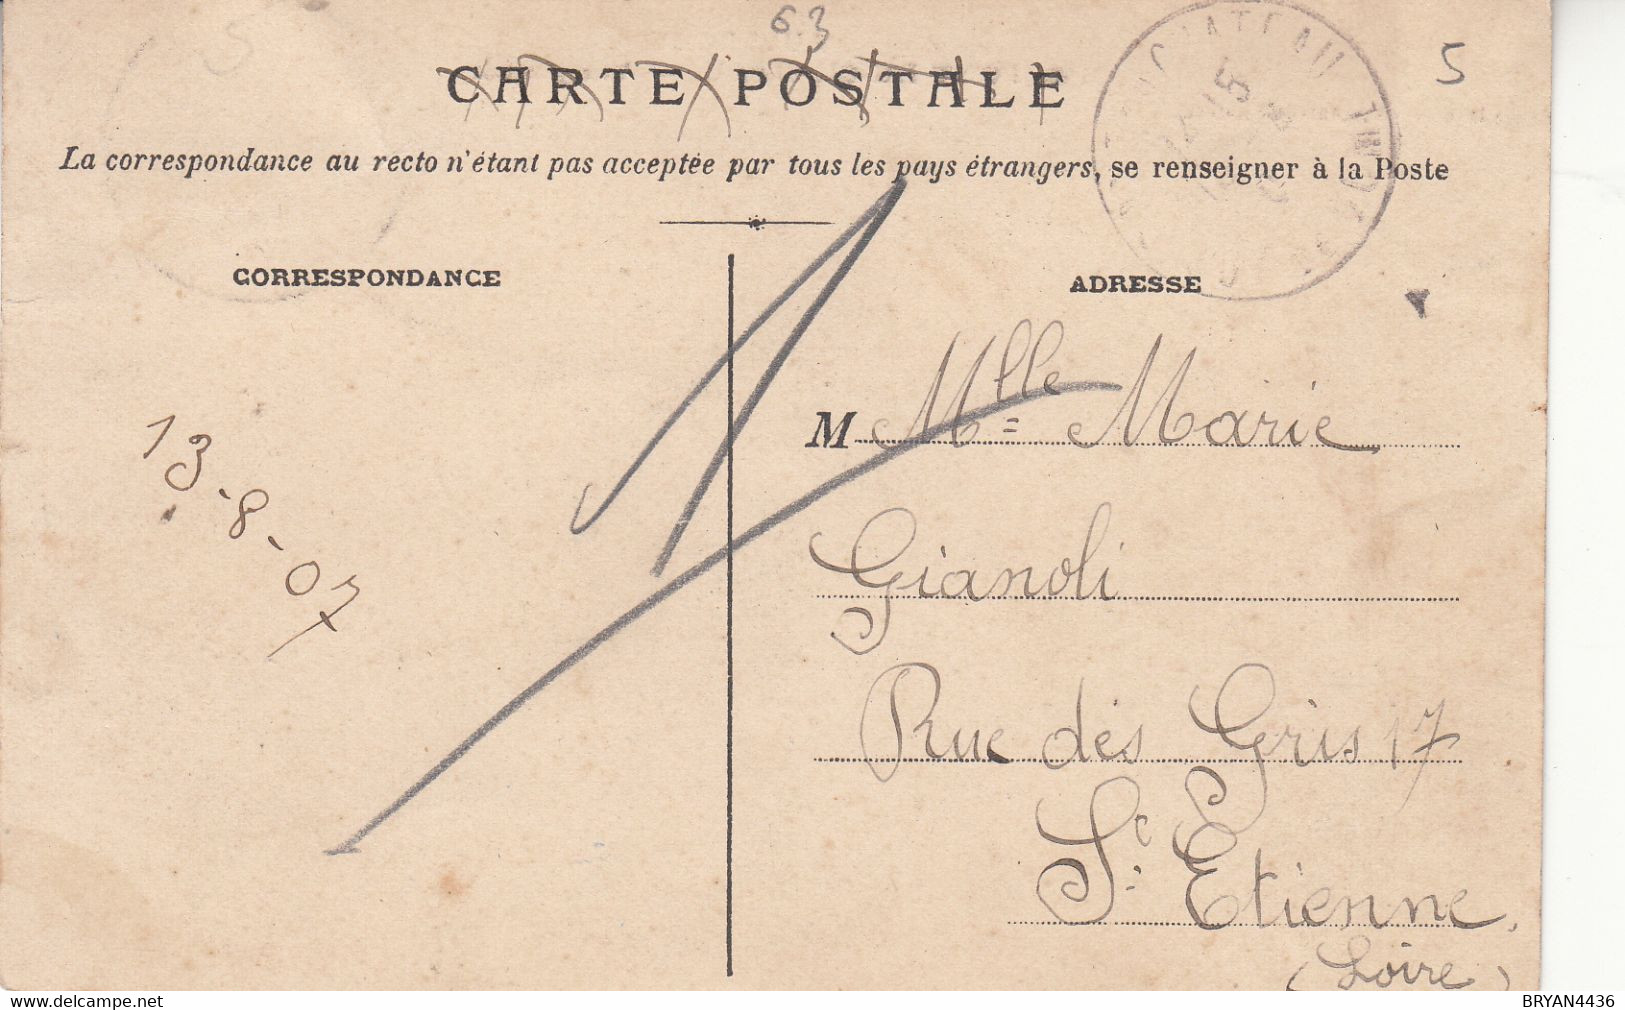 6.3
5
CARTE POSTALE
La correspondance au recto n'étant pas acceptée par tous les pays étrangers, se renseigner à la Poste
CORRESPONDANCE
ADRESSE
13-8-07
M Mlle Marie
Gianoli
Rue des Gris 17
St. Etienne,
(Loire)
delcampe.net
BRYAN4436